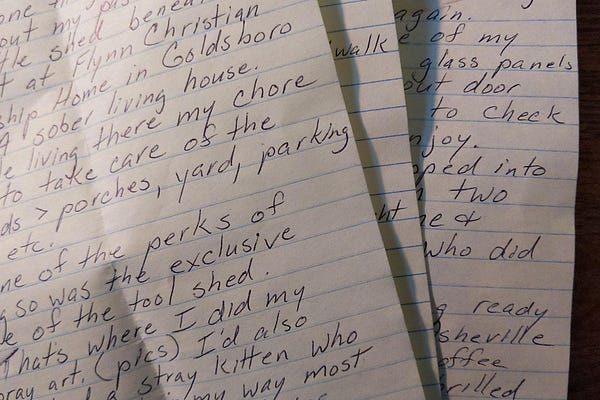 one
out my pas
tle shed beneat
t at Flynn Christian
ship Home in Goldsboro
A sober living house.
e living there my chore
to take care of the
ds > porches, yard, parking
etc.
ne of the perks of
g so was the exclusive
e of the tool shed.
That's where I did my
pray art. (pics) I'd also
a stray kitten who
my way most
walk
ht
again.
e of my
glass panels
out door
to check
njoy.
pped into
two
ne &
who did
g ready
sheville
offee
rilled